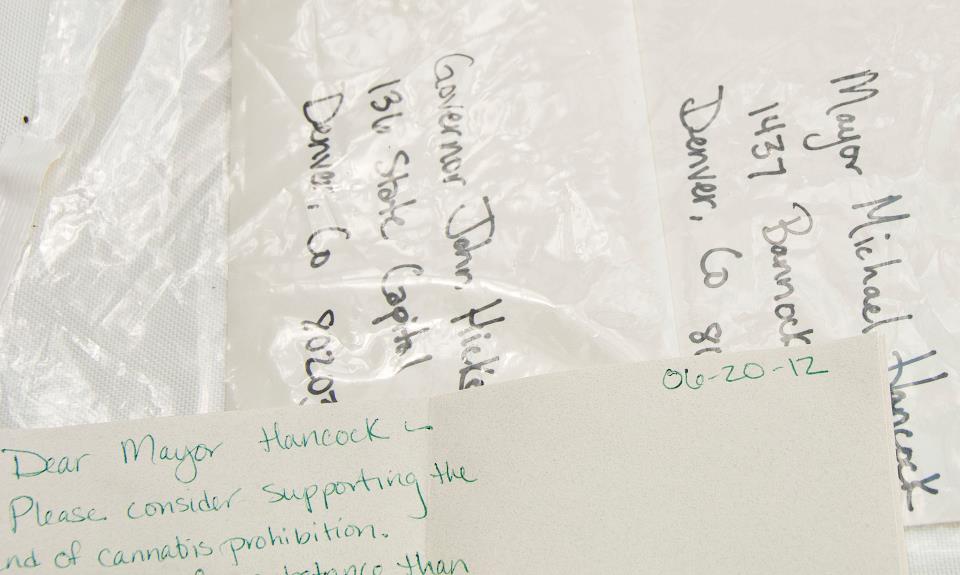 Governor John Hick
136 State Capitol
Denver, Co 8020
Mayor Michael Hancock
1437 Bannock
Denver, Co 80
06-20-12
Dear Mayor Hancock –
Please consider supporting the
nd of cannabis prohibition.
than